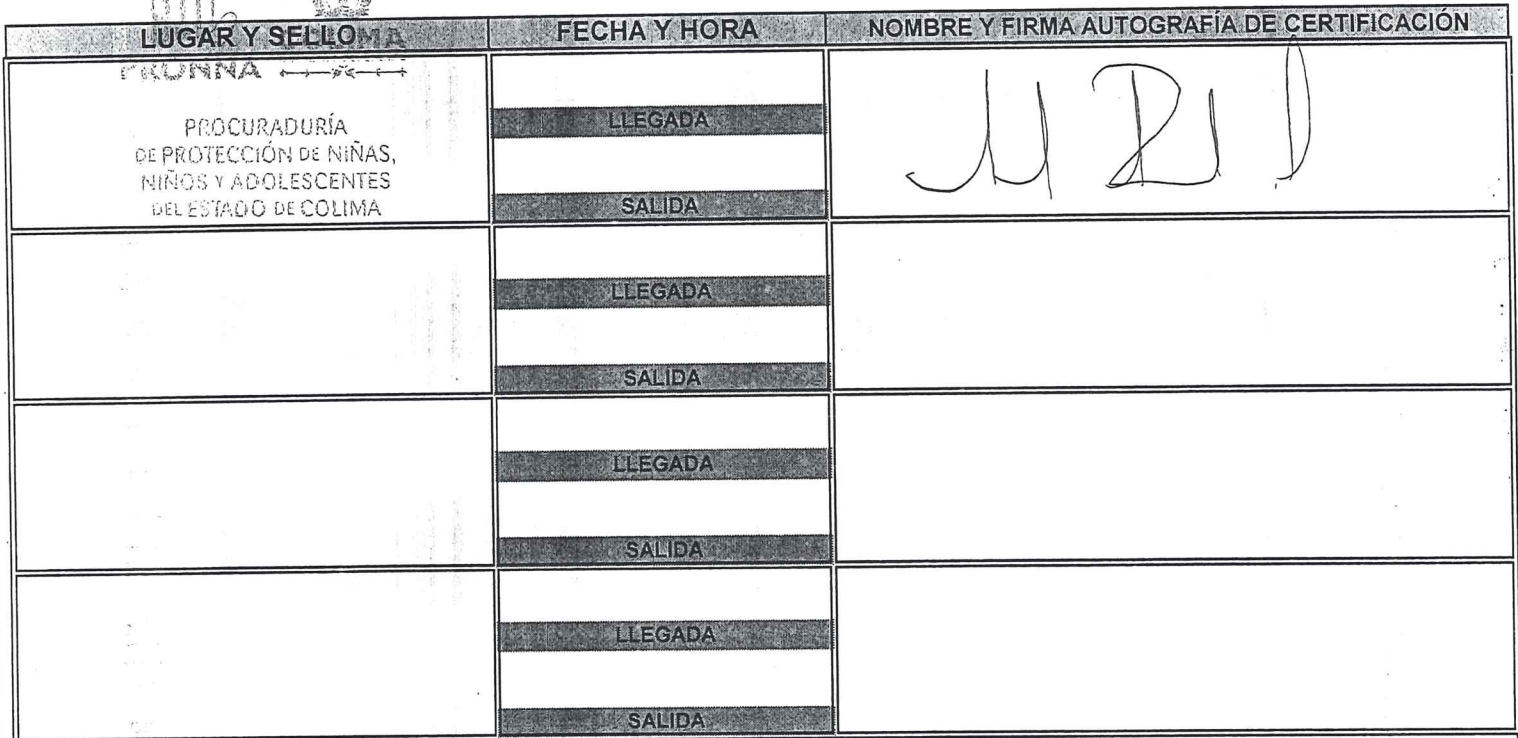 LUGAR Y SELLO FECHA Y HORA NOMBRE Y FIRMA AUTOGRAFÍA DE CERTIFICACIÓN
PRONNA
PROCURADURÍA
DE PROTECCIÓN DE NIÑAS,
NIÑOS Y ADOLESCENTES
DEL ESTADO DE COLIMA
LLEGADA
SALIDA
LLEGADA
SALIDA
LLEGADA
SALIDA
LLEGADA
SALIDA